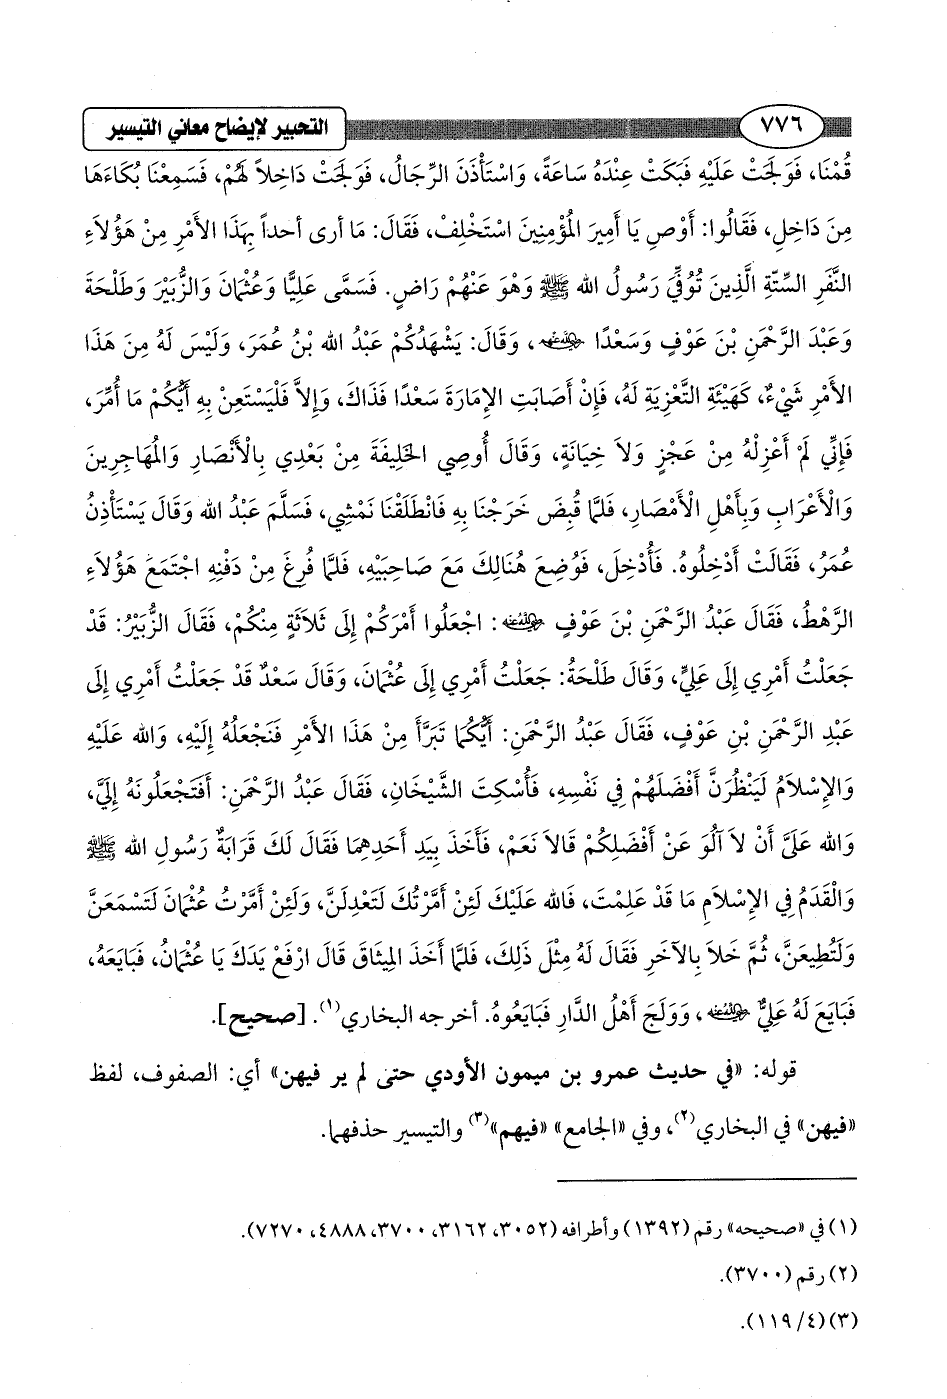 ٧٧٦ التحبير لإيضاح معاني التيسير
قُمْنَا، فَوَلَجَتْ عَلَيْهِ فَبَكَتْ عِنْدَهُ سَاعَةً، وَاسْتَأْذَنَ الرِّجَالُ، فَوَلَجَتْ دَاخِلاً لَهُمْ، فَسَمِعْنَا بُكَاءَهَا
مِنَ دَاخِلِ، فَقَالُوا: أَوْصِ يَا أَمِيرَ الْمُؤْمِنِينَ اسْتَخْلِفْ، فَقَالَ: مَا أرى أحداً بِهَذَا الأَمْرِ مِنْ هَؤُلاَءِ
النَّفَرِ السِّتَّةِ الَّذِينَ تُوُفِّيَ رَسُولُ الله ﷺ وَهوَ عَنْهُمْ رَاضٍ. فَسَمَّى عَلِيًّا وَعُثْمَانَ وَالزُّبَيْرَ وَطَلْحَةَ
وَعَبْدَ الرَّحْمَنِ بْنَ عَوْفٍ وَسَعْدًا رضي الله عنهم، وَقَالَ: يَشْهَدُكُمْ عَبْدُ الله بْنُ عُمَرَ، وَلَيْسَ لَهُ مِنَ هَذَا
الأَمْرِ شَيْءٌ، كَهَيْئَةِ التَّعْزِيَةِ لَهُ، فَإِنْ أَصَابَتِ الإِمَارَةَ سَعْدًا فَذَاكَ، وَإِلاَّ فَلْيَسْتَعِنْ بِهِ أَيُّكُمْ مَا أُمِّرَ،
فَإِنِّي لَمْ أَعْزِلْهُ مِنْ عَجْزٍ وَلاَ خِيَانَةٍ، وَقَالَ أُوصِي الخَلِيفَةَ مِنْ بَعْدِي بِالْأَنْصَارِ وَالْمُهَاجِرِينَ
وَالْأَعْرَابِ وَبِأَهْلِ الْأَمْصَارِ، فَلَمَّا قُبِضَ خَرَجْنَا بِهِ فَانْطَلَقْنَا نَمْشِي، فَسَلَّمَ عَبْدُ الله وَقَالَ يَسْتَأْذِنُ
عُمَرُ، فَقَالَتْ أَدْخِلُوهُ. فَأُدْخِلَ، فَوُضِعَ هُنَالِكَ مَعَ صَاحِبَيْهِ، فَلَمَّا فُرِغَ مِنْ دَفْنِهِ اجْتَمَعَ هَؤُلاَءِ
الرَّهْطُ، فَقَالَ عَبْدُ الرَّحْمَنِ بْنُ عَوْفٍ رضي الله عنه: اجْعَلُوا أَمْرَكُمْ إِلَى ثَلاَثَةٍ مِنْكُمْ، فَقَالَ الزُّبَيْرُ: قَدْ
جَعَلْتُ أَمْرِي إِلَى عَلِيٍّ، وَقَالَ طَلْحَةُ: جَعَلْتُ أَمْرِي إِلَى عُثْمَانَ، وَقَالَ سَعْدٌ قَدْ جَعَلْتُ أَمْرِي إِلَى
عَبْدِ الرَّحْمَنِ بْنِ عَوْفٍ، فَقَالَ عَبْدُ الرَّحْمَنِ: أَيُّكُمَا تَبَرَّأَ مِنْ هَذَا الأَمْرِ فَنَجْعَلُهُ إِلَيْهِ، وَالله عَلَيْهِ
وَالإِسْلاَمُ لَيَنْظُرَنَّ أَفْضَلَهُمْ فِي نَفْسِهِ، فَأُسْكِتَ الشَّيْخَانِ، فَقَالَ عَبْدُ الرَّحْمَنِ: أَفَتَجْعَلُونَهُ إِلَيَّ،
وَالله عَلَيَّ أَنْ لاَ آلُوَ عَنْ أَفْضَلِكُمْ قَالاَ نَعَمْ، فَأَخَذَ بِيَدِ أَحَدِهِمَا فَقَالَ لَكَ قَرَابَةٌ رَسُولِ الله ﷺ
وَالْقَدَمُ فِي الإِسْلاَمِ مَا قَدْ عَلِمْتَ، فَالله عَلَيْكَ لَئِنْ أَمَّرْتُكَ لَتَعْدِلَنَّ، وَلَئِنْ أَمَّرْتُ عُثْمَانَ لَتَسْمَعَنَّ
وَلَتُطِيعَنَّ، ثُمَّ خَلاَ بِالآخَرِ فَقَالَ لَهُ مِثْلَ ذَلِكَ، فَلَمَّا أَخَذَ الْمِيثَاقَ قَالَ ارْفَعْ يَدَكَ يَا عُثْمَانُ، فَبَايَعَهُ،
فَبَايَعَ لَهُ عَلِيٌّ رضي الله عنه، وَوَلَجَ أَهْلُ الدَّارِ فَبَايَعُوهُ. أخرجه البخاري(١). [صحيح].
قوله: «في حديث عمرو بن ميمون الأودي حتى لم ير فيهن» أي: الصفوف، لفظ
«فيهن» في البخاري(٢)، وفي «الجامع» «فيهم»(٣) والتيسير حذفهما.
(١) في «صحيحه» رقم (١٣٩٢) وأطرافه (٣٠٥٢، ٣١٦٢، ٣٧٠٠، ٤٨٨٨، ٧٢٧٠).
(٢) رقم (٣٧٠٠).
(٣) (٤/ ١١٩).